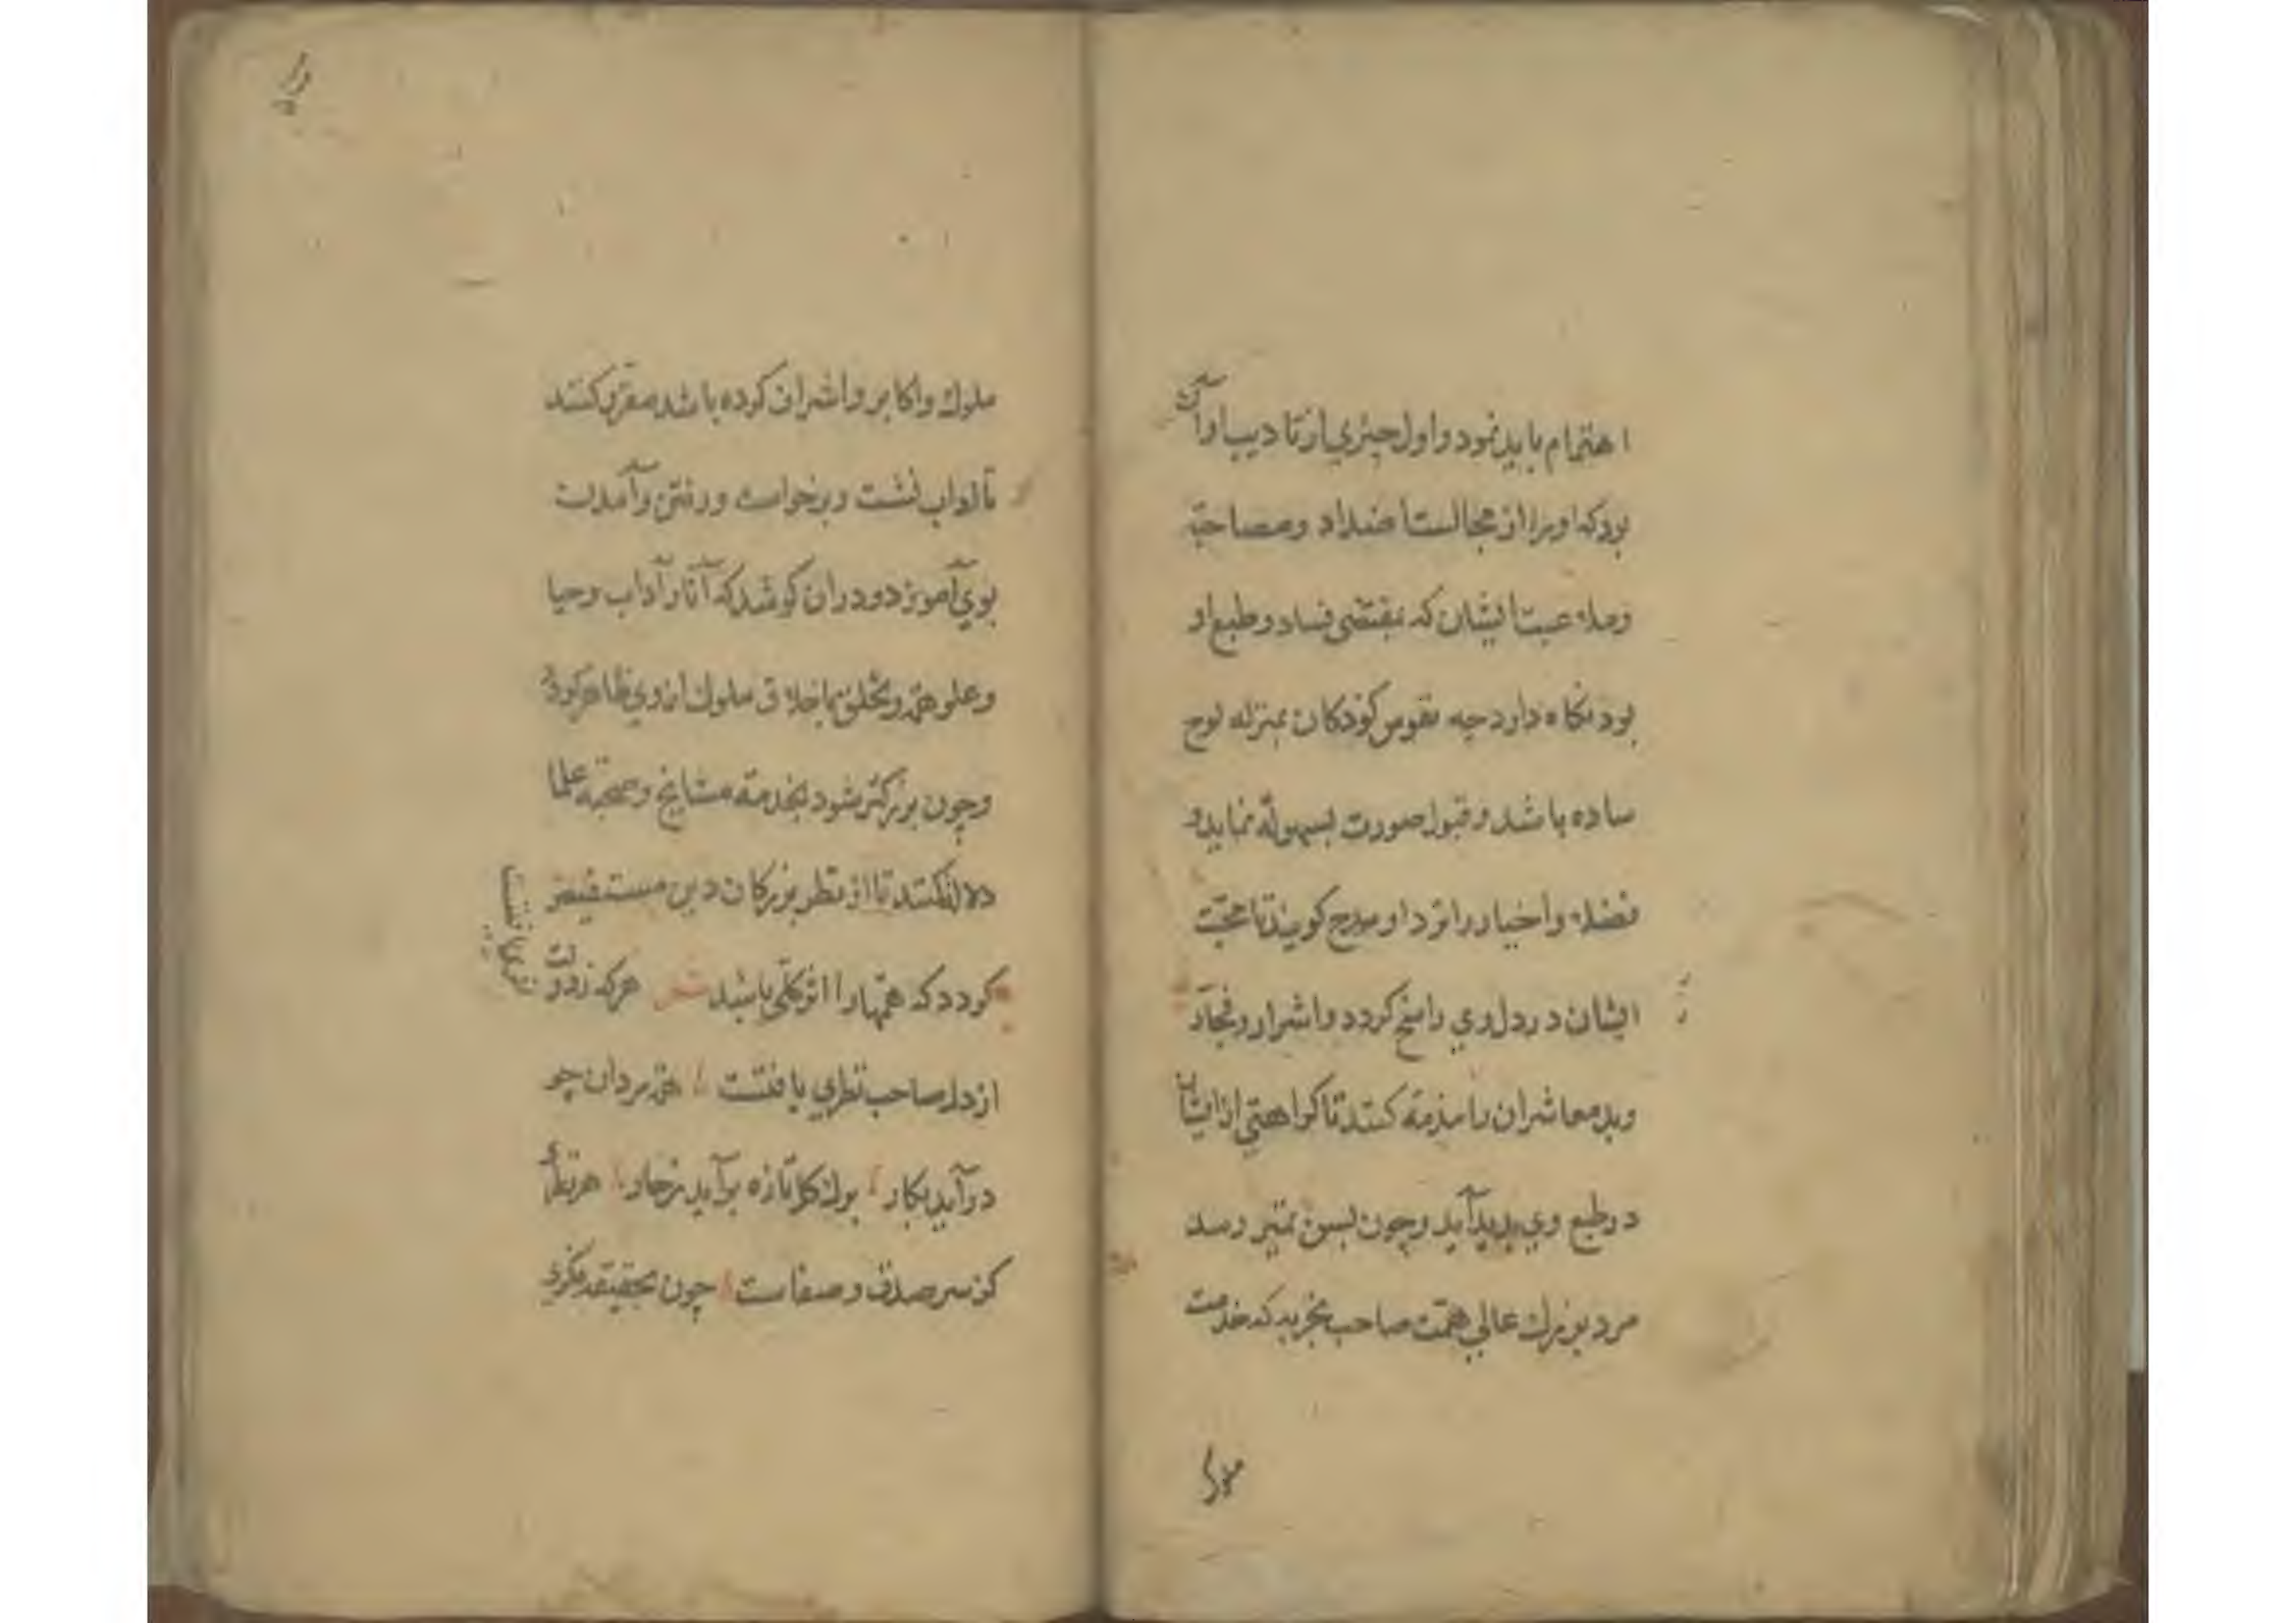 اهتمام باید نمود واول چیزي از تادیب او آن
بود که او را از مجالست اضداد ومصاحبة
وملاعبت ایشان که مقتضی فساد وطبع او
بود نکاه دارد چه نفوس کودکان بمنزله لوح
ساده باشد وقبول صورت بسهولة نماید و
فضلا واخیار را نزد او مدح کویند تا محبّت
ایشان در دل وي راسخ کردد واشرار وفجار
وبد معاشران را مذمة کنند تا کراهتي از ایشان
در طبع وي پدید آید وچون بسن تمیز رسد
مرد بزرك عالي همّت صاحب تجربه که خدمت
ملوك
ملوك واکابر واشراف کرده باشد مقرر کنند
تا اداب نشست وبرخواست ورفتن وآمدن
بوي آموزد ودر ان کوشد که آثار آداب وحیا
وعلو همّة وتخلق باخلاق ملوك از وي ظاهر کردد
وچون بزرکتر شود بخدمة مشایخ وصحبة علما
دلالة کنند تا از نظر بزرکان دین مستفیض
کردد که همّتها را اثر کلّي باشد شعر هرکه زد ولت
از دل صاحب نظري یافتست همّة مردان چو
در آید بکار برك کل تازه بر آید زخار هر نظر
کز سر صدق وصفاست چون بحقیقة نکري